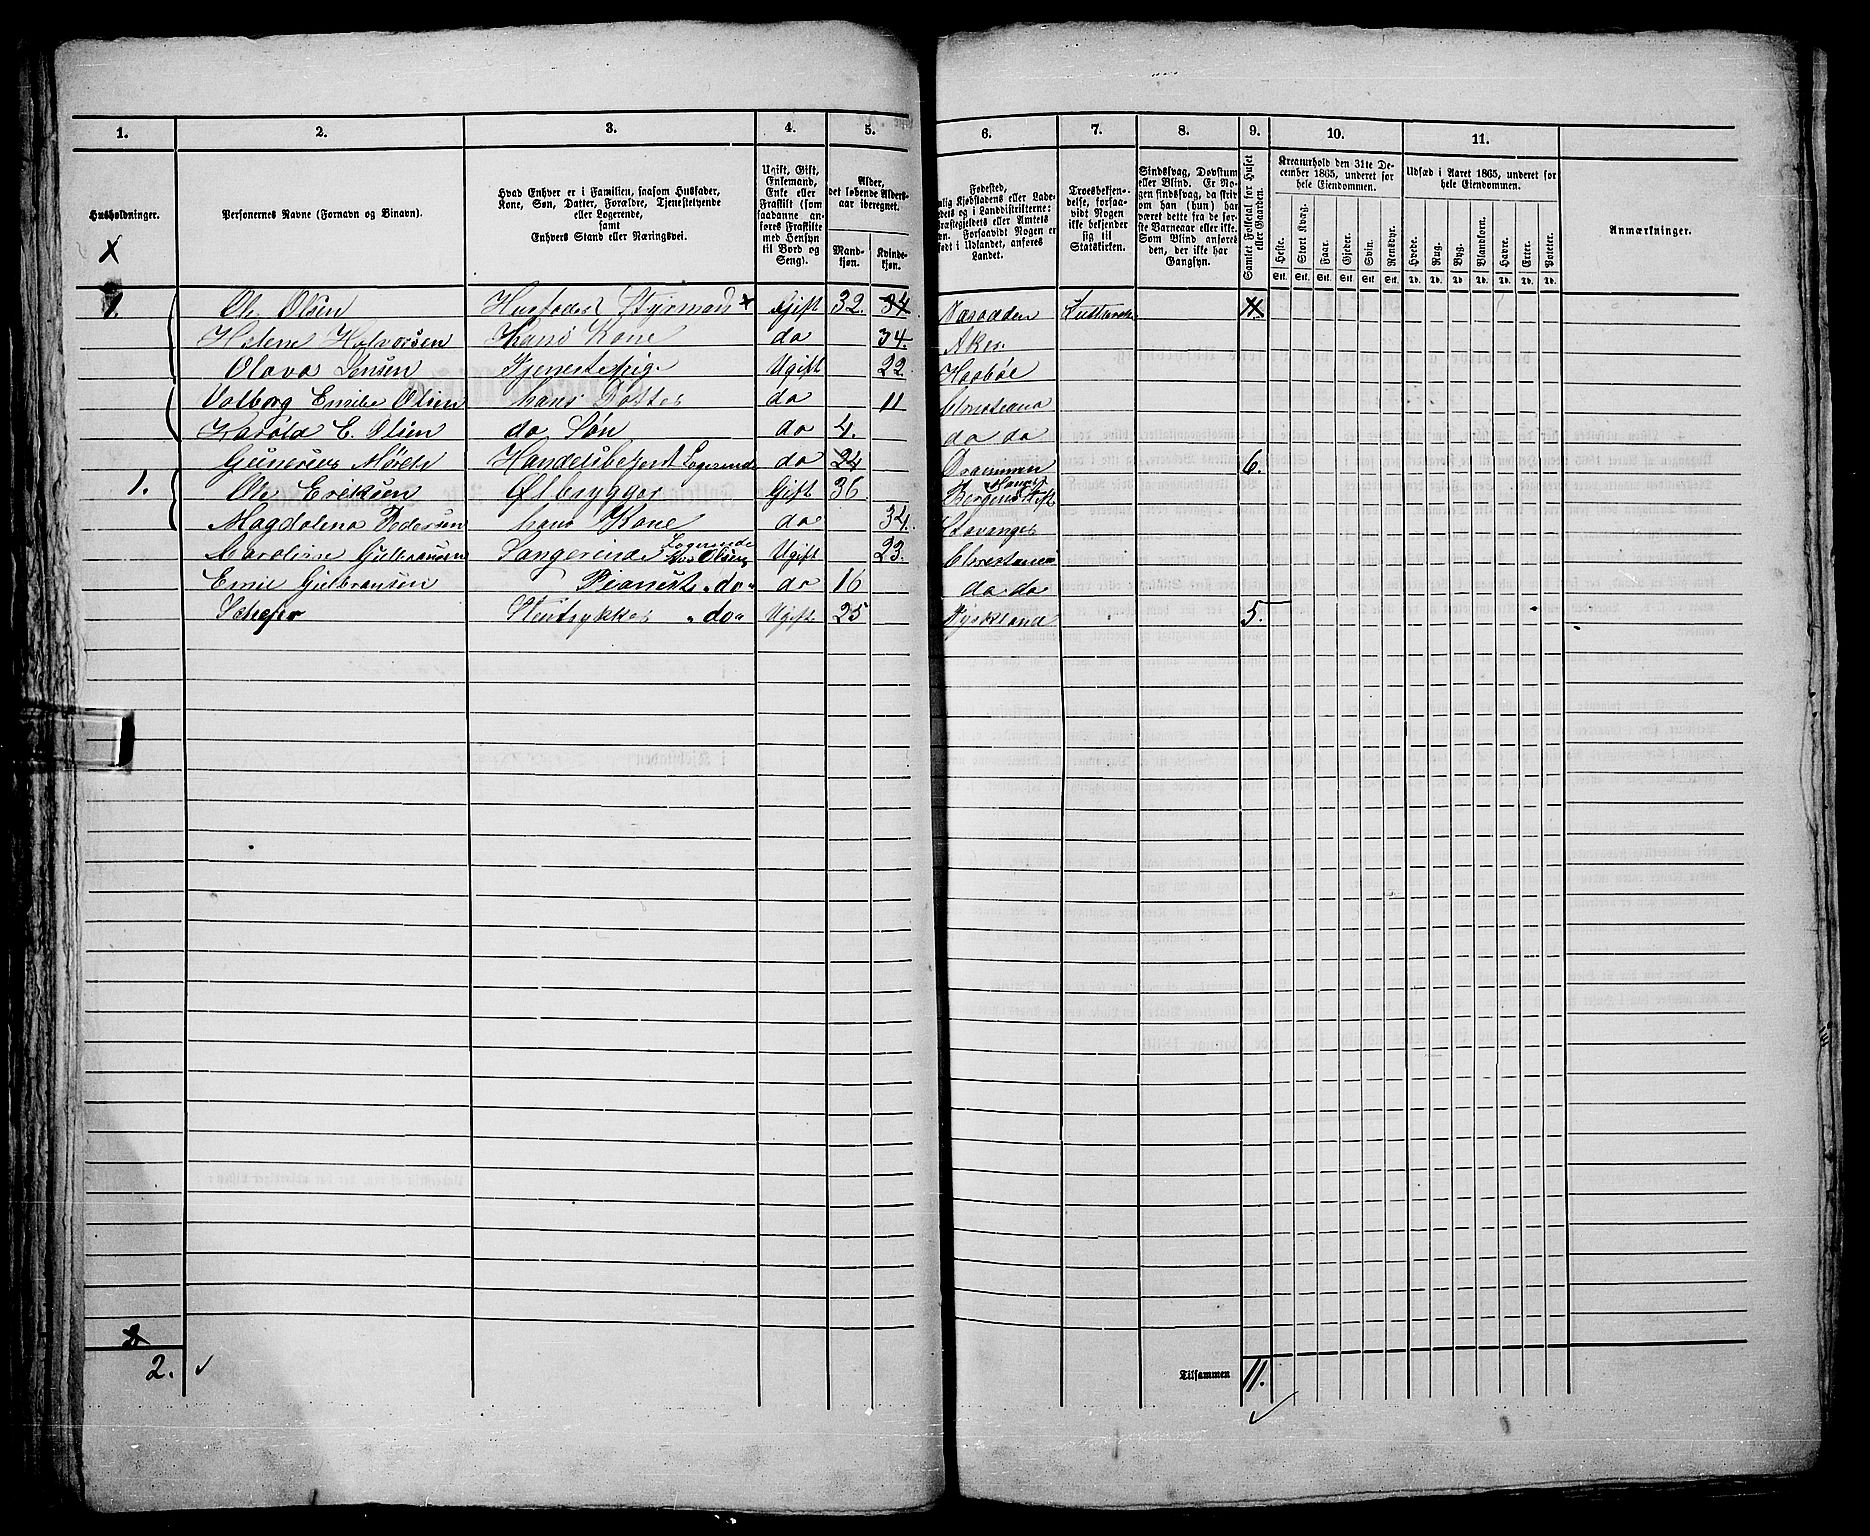 1. 2. 3. 4. 5. 6. 7. 8. 9. 10. 11.
Husholdninger.
Personernes Navne (Fornavn og Binavn).
Hvad Enhver er i Familien, saasom Husfader,
Kone, Søn, Datter, Forældre, Tjenestetyende
eller Logerende,
samt
Enhvers Stand eller Næringsvei.
Ugift, Gift,
Enkemand,
Enke eller
Fraskilt (som
saadanne an-
føres Fraskilte
med Hensyn
til Bord og
Seng).
Alder,
det løbende Alders-
aar iberegnet.
Mand-
kjøn.
Kvinde-
kjøn.
Fødested,
Troesbekjen-
delse, forsaa-
vidt Nogen
ikke bekjender
sig til
Statskirken.
Sindssvag, Døvstum
eller Blind. Er No-
gen sindssvag, da skri-
ves om han (hun) har
været dette fra de før-
ste Barneaar eller ikke.
Som Blind anføres
den, der ikke har
Gangsyn.
Samlet Folketal for Huset
eller Gaarden.
Kreaturhold den 31te De-
cember 1865, underet for
hele Eiendommen.
Heste. Stort Kvæg. Faar. Gjeder. Svin. Rensdyr.
Stk. Stk. Stk. Stk. Stk. Stk.
Udsæd i Aaret 1865, underet for
hele Eiendommen.
Hvede. Rug. Byg. Blandkorn. Havre. Erter. Poteter.
Td. Td. Td. Td. Td. Td. Td.
Anmærkninger.
1. Ole Olsen Husfader Styrmand x Gift 32. 34 Næsodden 11
Helene Halvorsen Hans Kone do 34. Aker
Olava Jensen Tjenestepige Ugift 22. Haabøl
Valborg Emilie Olsen hans Datter do 11 Christiania
Harald E. Olsen do Søn do 4. do do
Gunerius Handelsbetjent Logerende do 24 Drammen 6.
1. Ole Eriksen Ølbrygger Gift 36 Bergens Stift
Magdalena Pedersen hans Kone do 34. Stavanger
Caroline Gulbransen Sangerinde Logerende hos Olsen Ugift 23. Christiania
Emil Gulbransen Pianist "do" do 16 do do
Stentrykker "do" Ugift 25 Tyskland 5.
2.
Tilsammen 11.